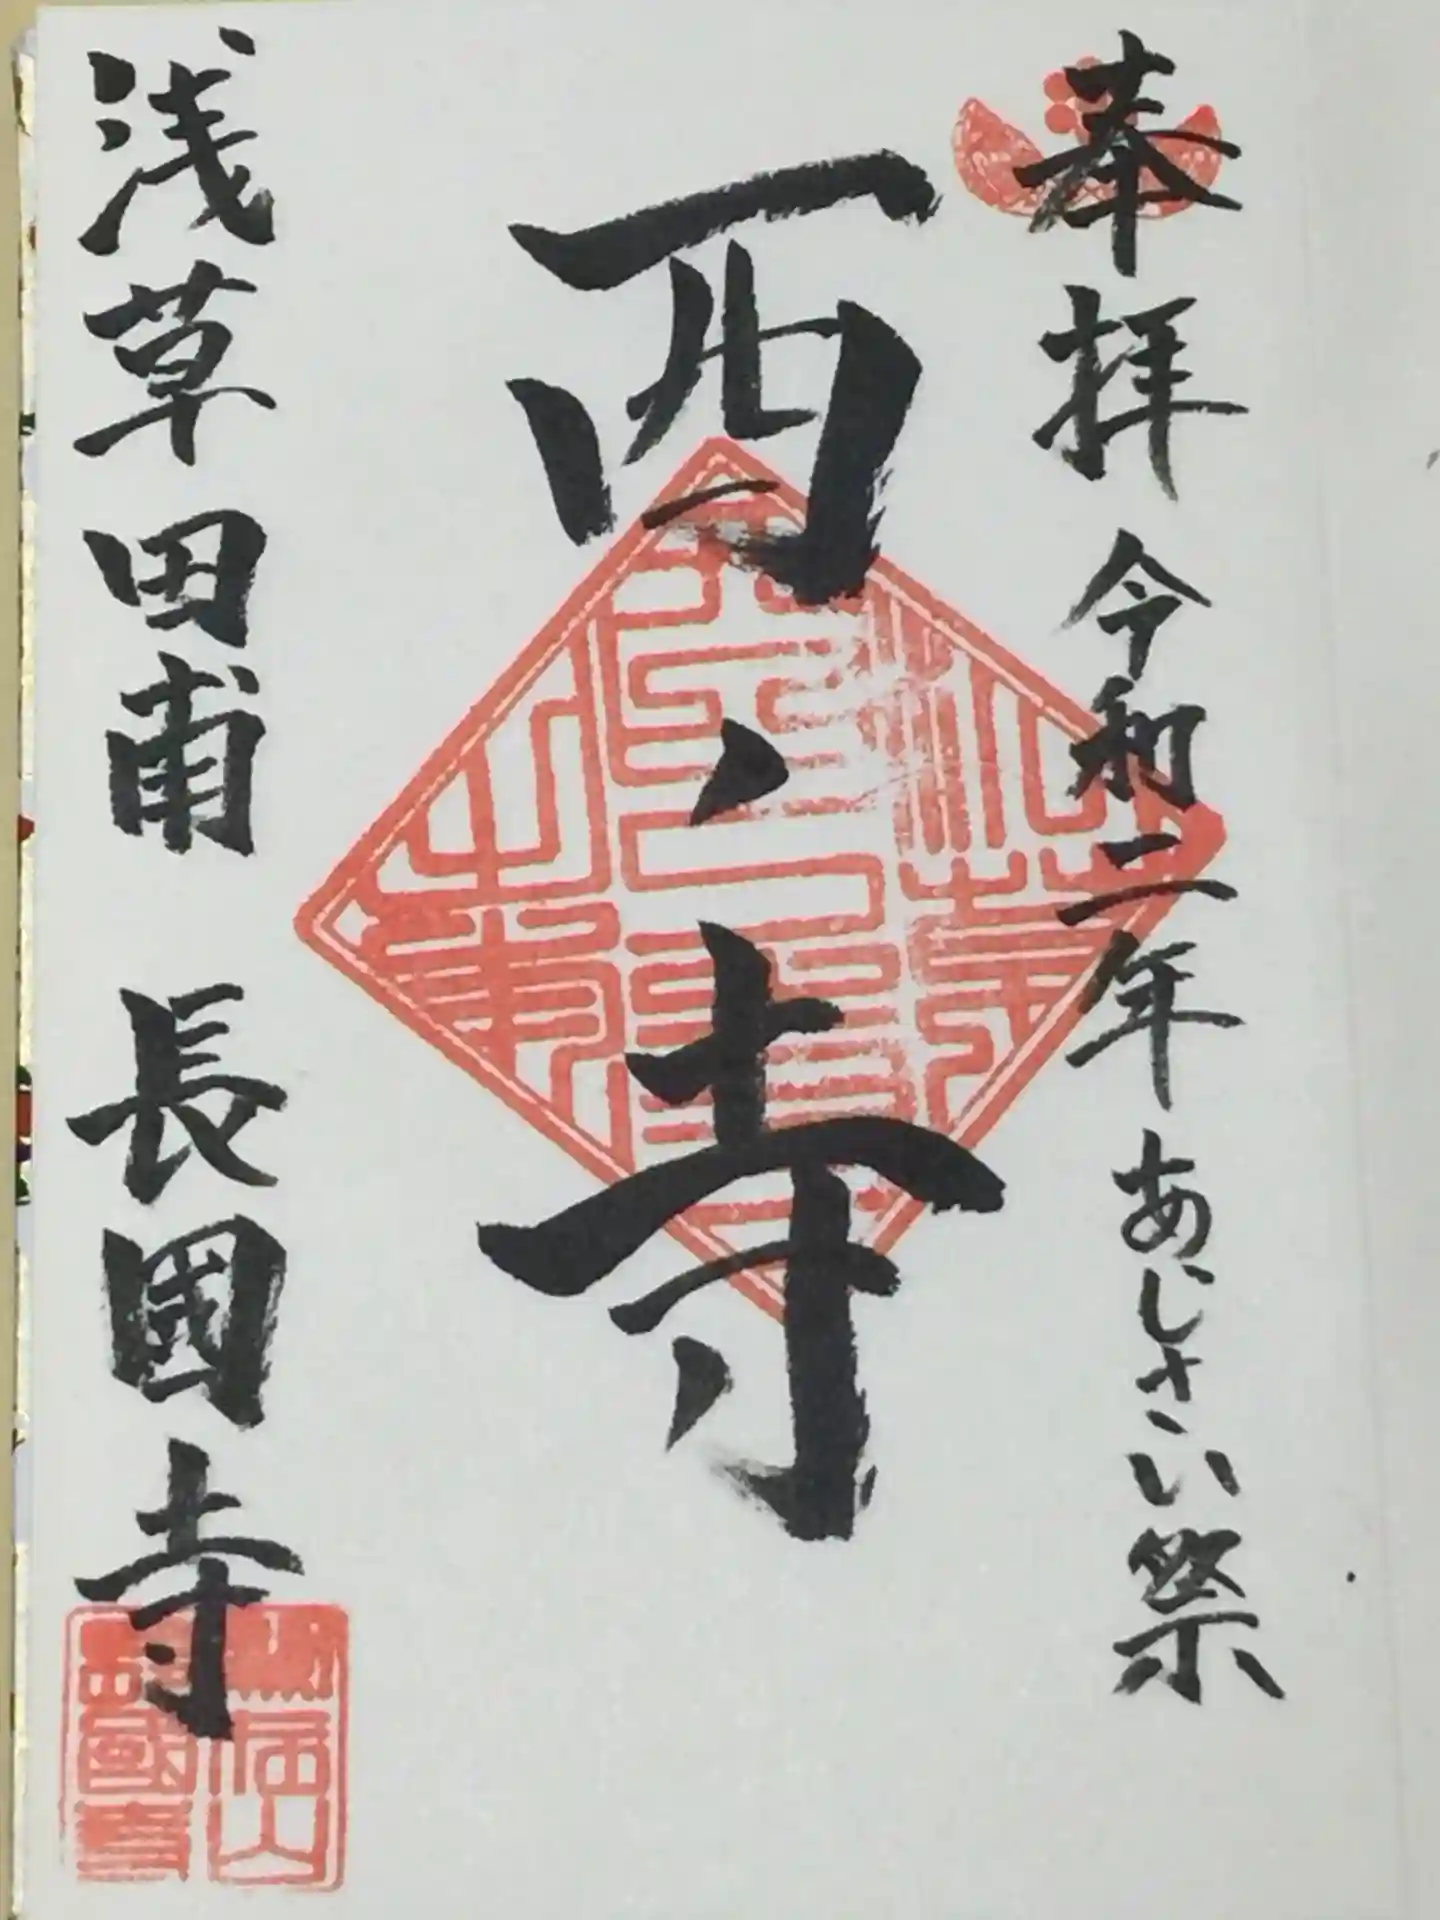 奉拝 令和二年 あじさい祭
西の寺
浅草田甫 長國寺